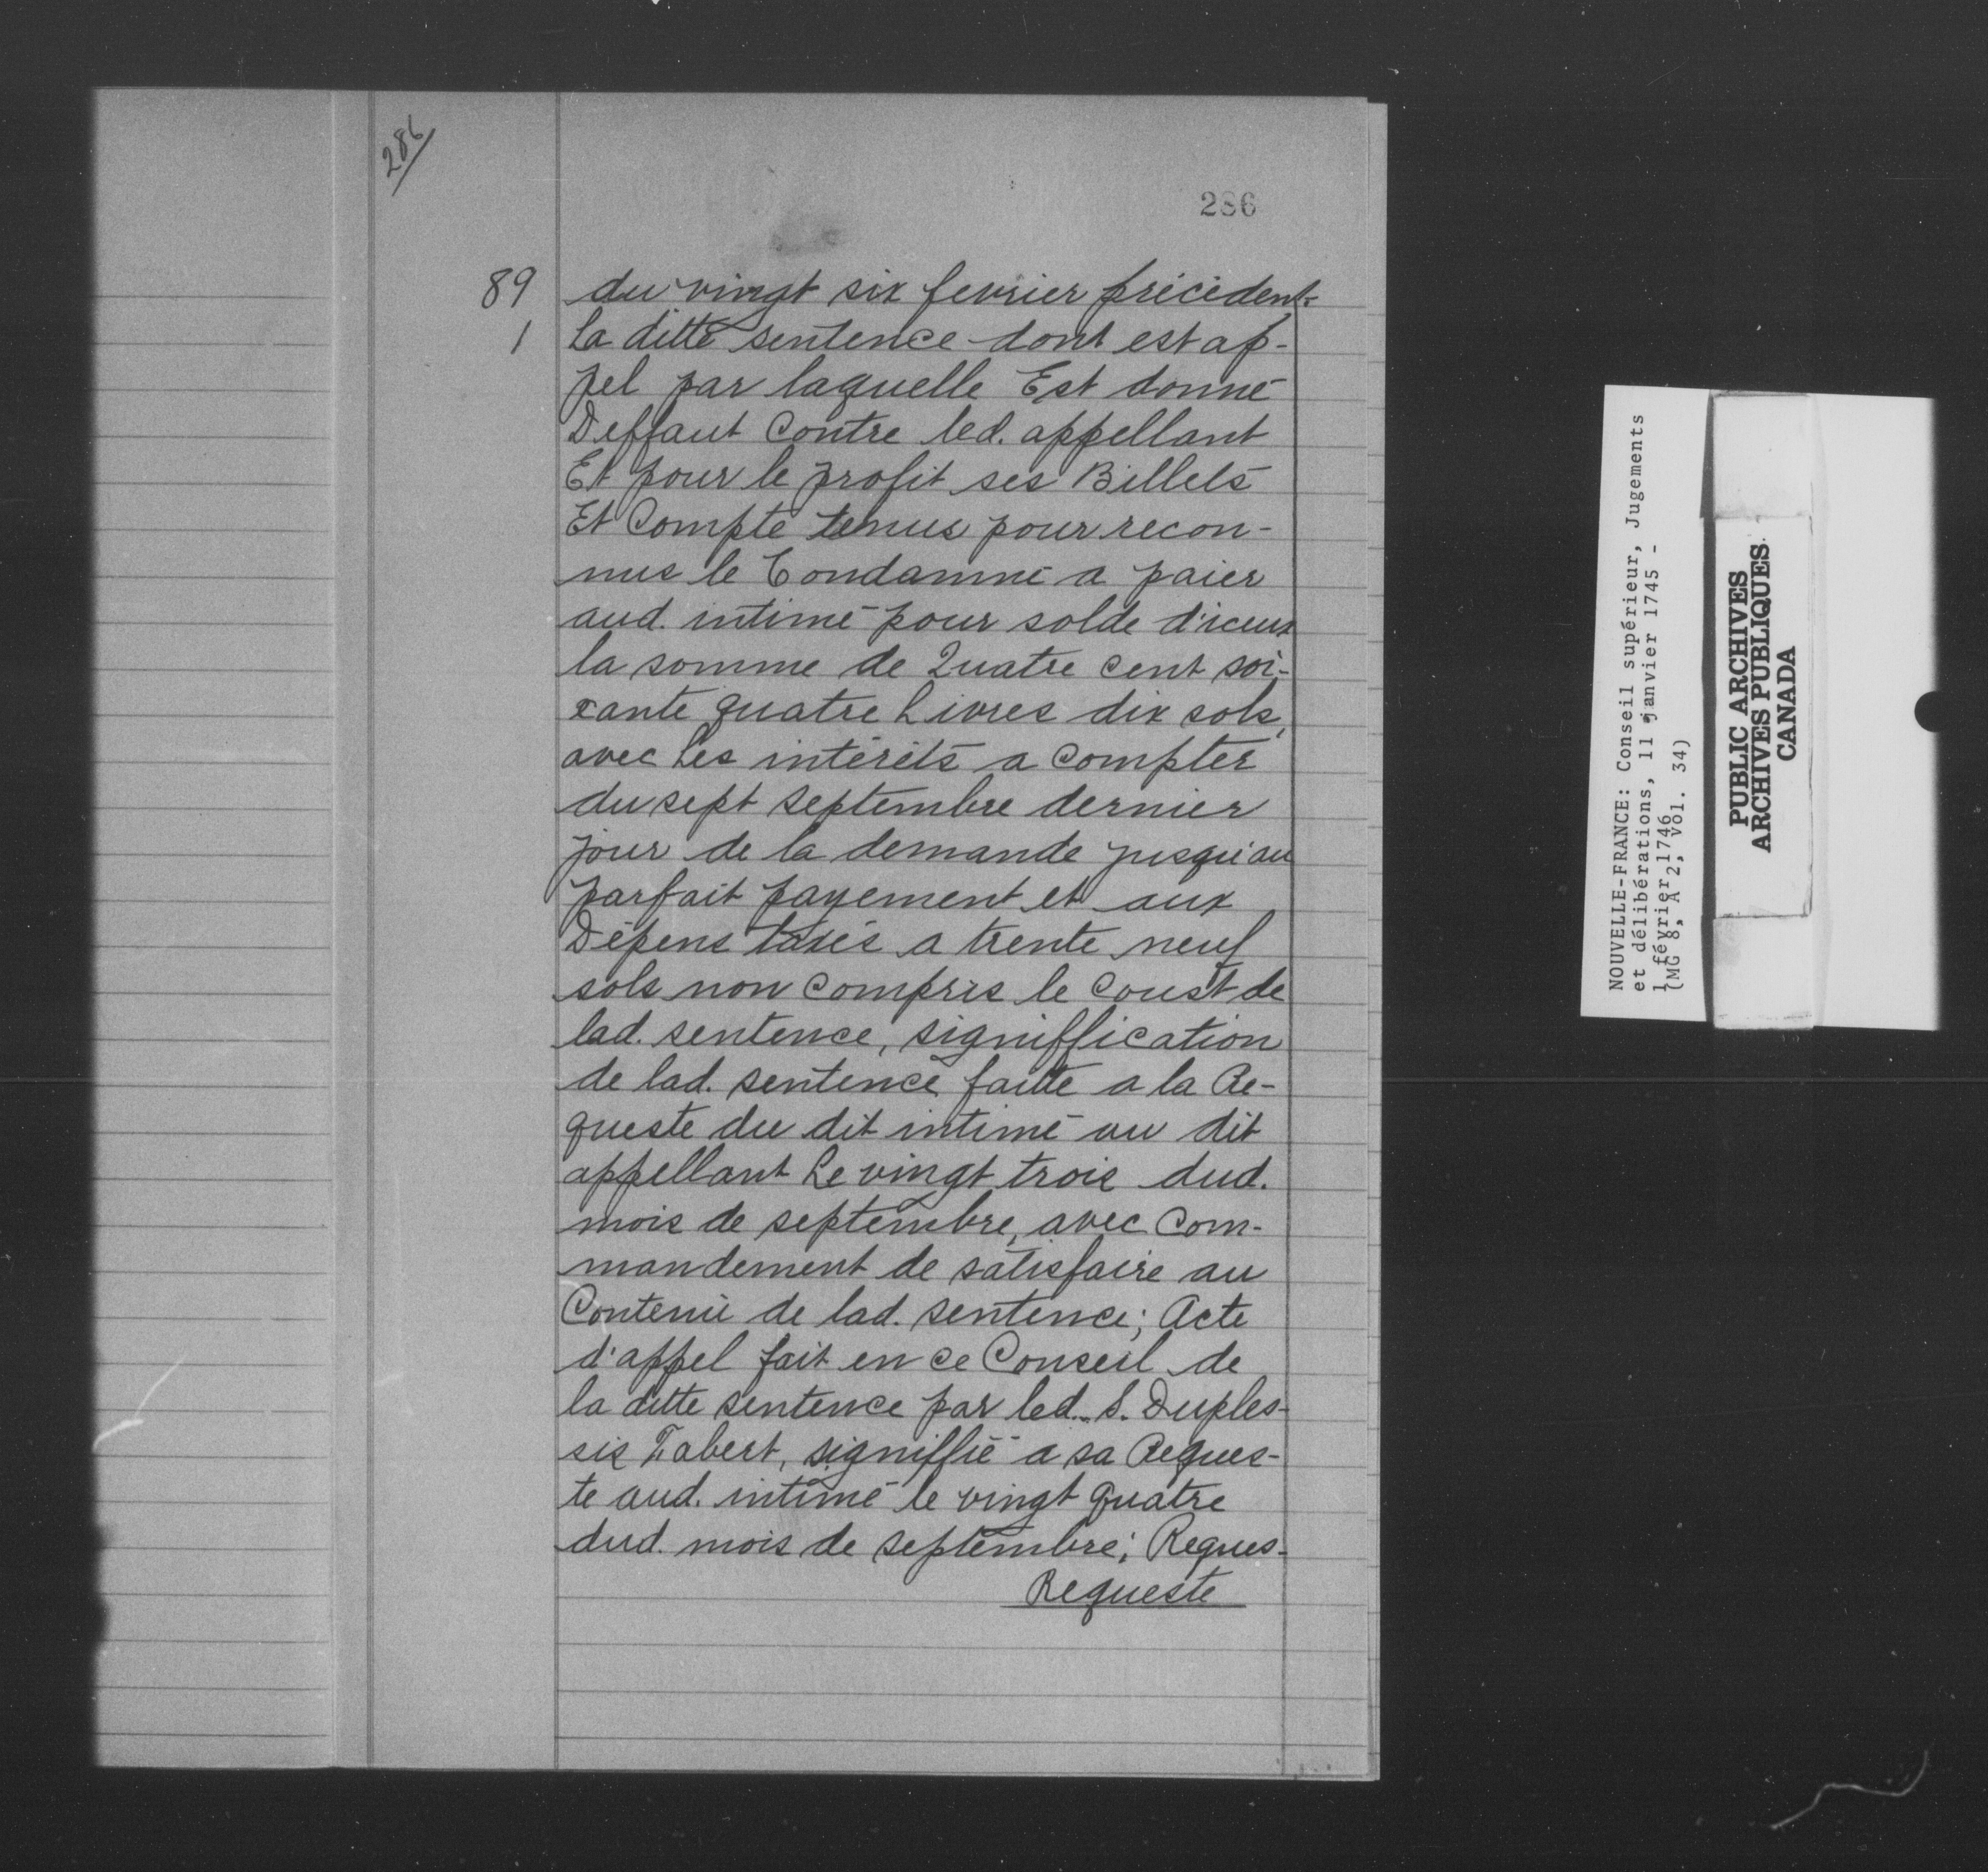 286
286
89
1
du vingt six fevrier précédent
la ditte sentence dont est ap-
pel par laquelle Est donné
Deffaut Contre led. appellant
Et pour le profit ses Billets
Et Compte tenus pour recon-
nus le Condamné a paier
aud. intimé pour solde d'iceux
la somme de Quatre Cent soi-
xante quatre Livres dix sols,
avec Les intérêts a Compter
du sept Septembre dernier
jour de la demande jusqu'au
parfait payement et aux
Dépens taxés a trente neuf
sols non Compris le Coust de
lad. sentence, signiffication
de lad. sentence faitte a la Re-
queste du dit intimé au dit
appellant Le vingt trois dud.
mois de septembre, avec Com-
mandement de satisfaire au
Contenu de lad. sentence; Acte
d'appel fait en ce Conseil de
la ditte sentence par led. S. Duples-
sis Fabert, signiffié a sa Reques-
te aud. intimé le vingt quatre
dud. mois de septembre; Reques-
Requeste
NOUVELLE-FRANCE: Conseil supérieur, Jugements
et délibérations, 11 janvier 1745 -
1 février 1746
(MG 8, A 2, vol. 34)
PUBLIC ARCHIVES
ARCHIVES PUBLIQUES
CANADA